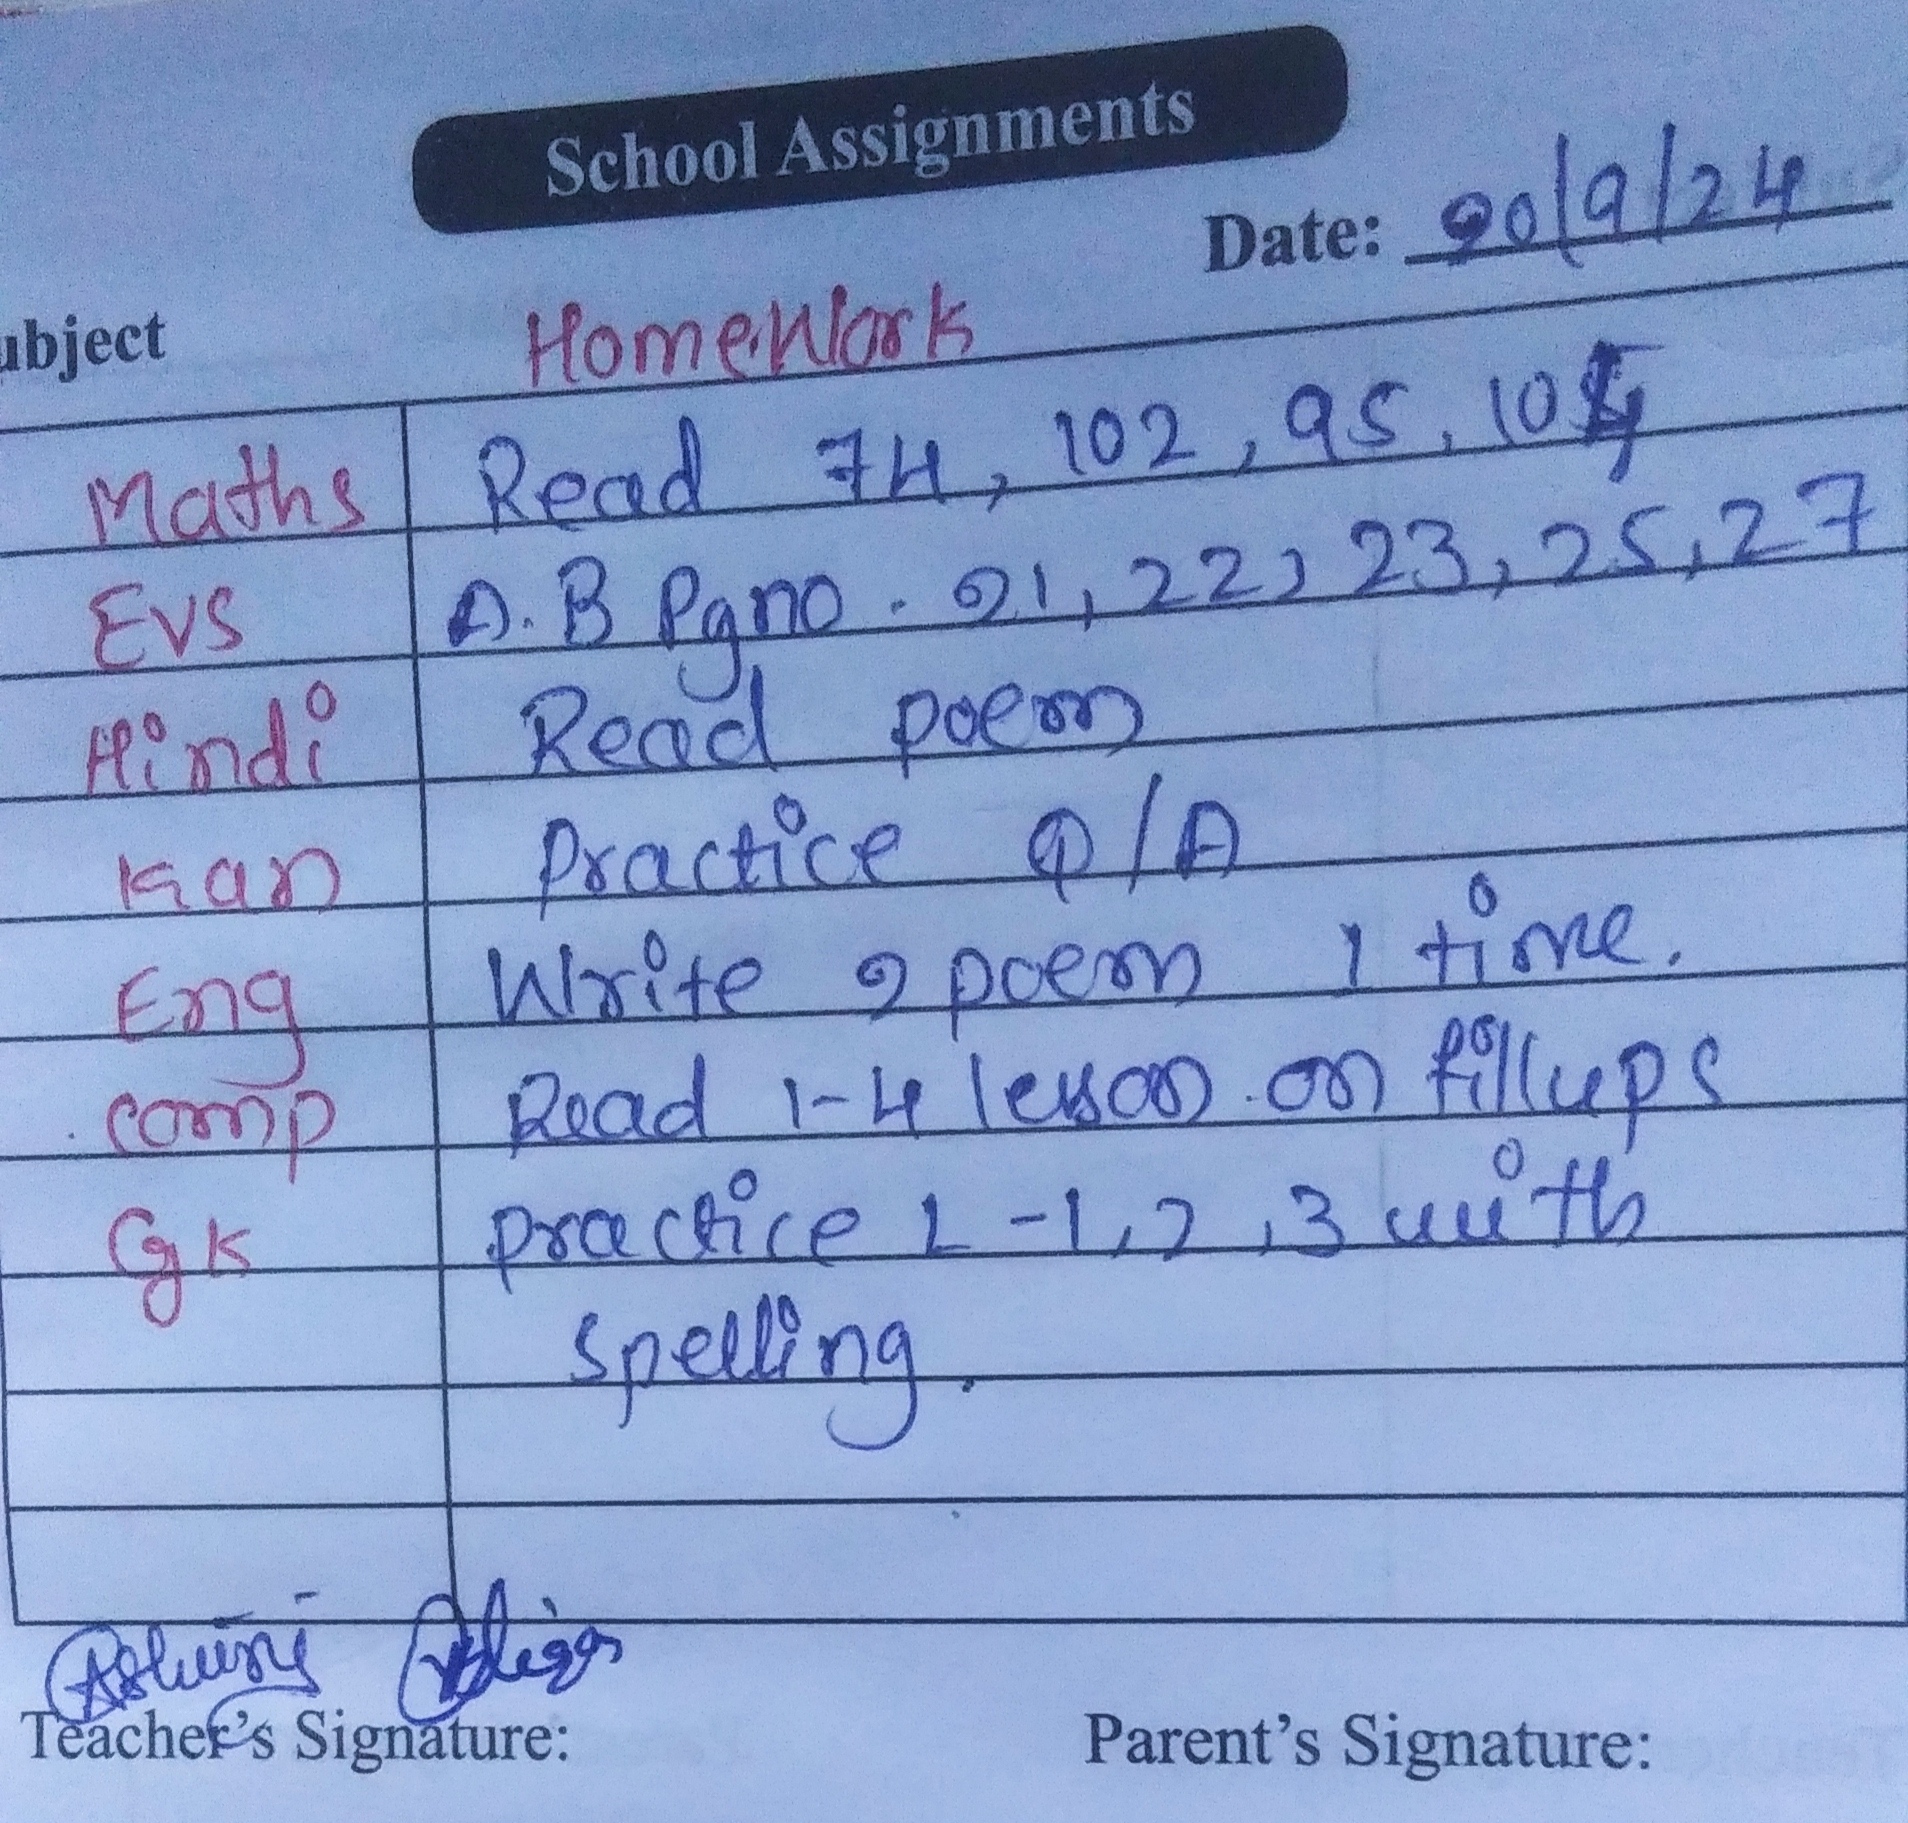 School Assignments
Date: 20/9/24
ubject HomeWork
Maths Read 74, 102, 95, 104
Evs A.B Pgno. 21, 22, 23, 25, 27
Hindi Read poem
Kan Practice Q/A
Eng Write 2 poem 1 time.
comp Read 1-4 lesson on fillups
Gk practice L-1,2,3 with
spelling.
Ashwini
Teacher's Signature: Parent's Signature: